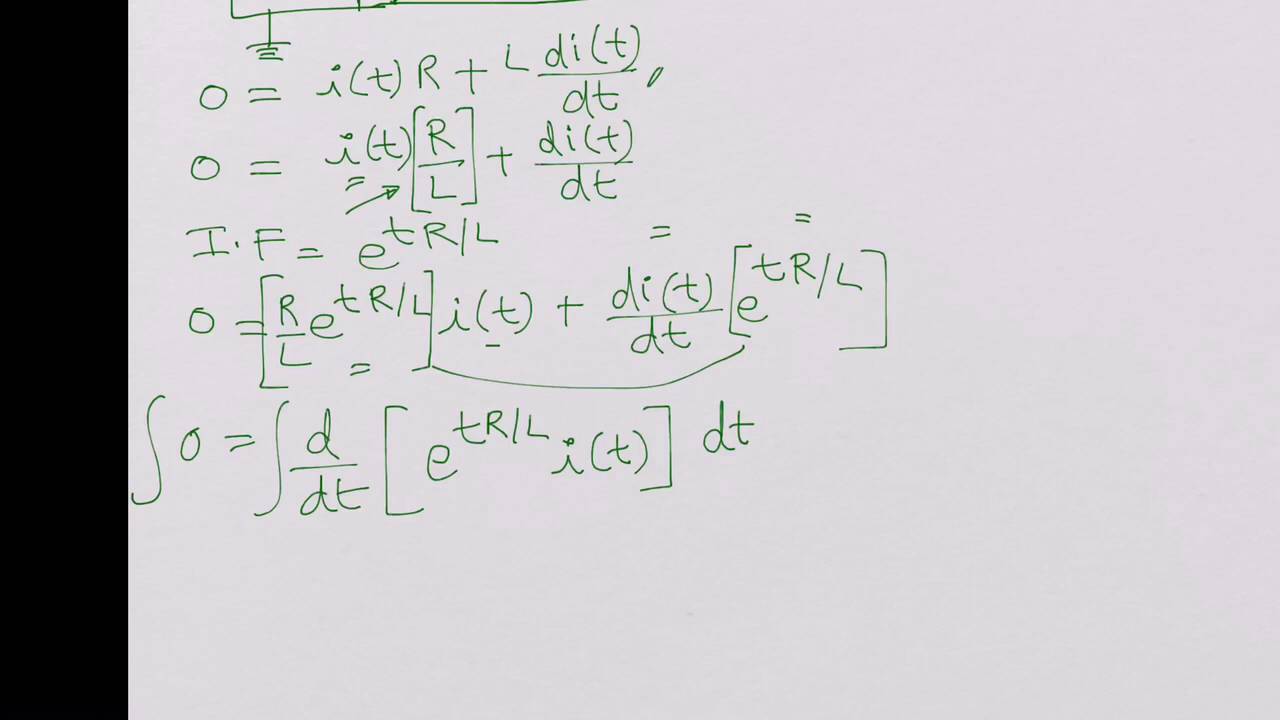 0 = i(t) R + L di(t)/dt,
0 = i(t) [R/L] + di(t)/dt
I.F = e^{tR/L}
0 = [R/L e^{tR/L}] i(t) + di(t)/dt [e^{tR/L}]
∫ 0 = ∫ d/dt [e^{tR/L} i(t)] dt